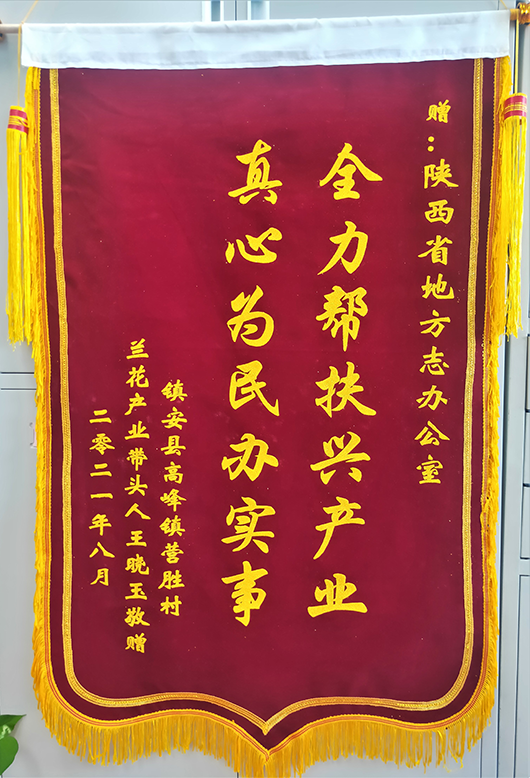 赠：陕西省地方志办公室
全力帮扶兴产业
真心为民办实事
镇安县高峰镇营胜村
兰花产业带头人王晓玉敬赠
二零二一年八月